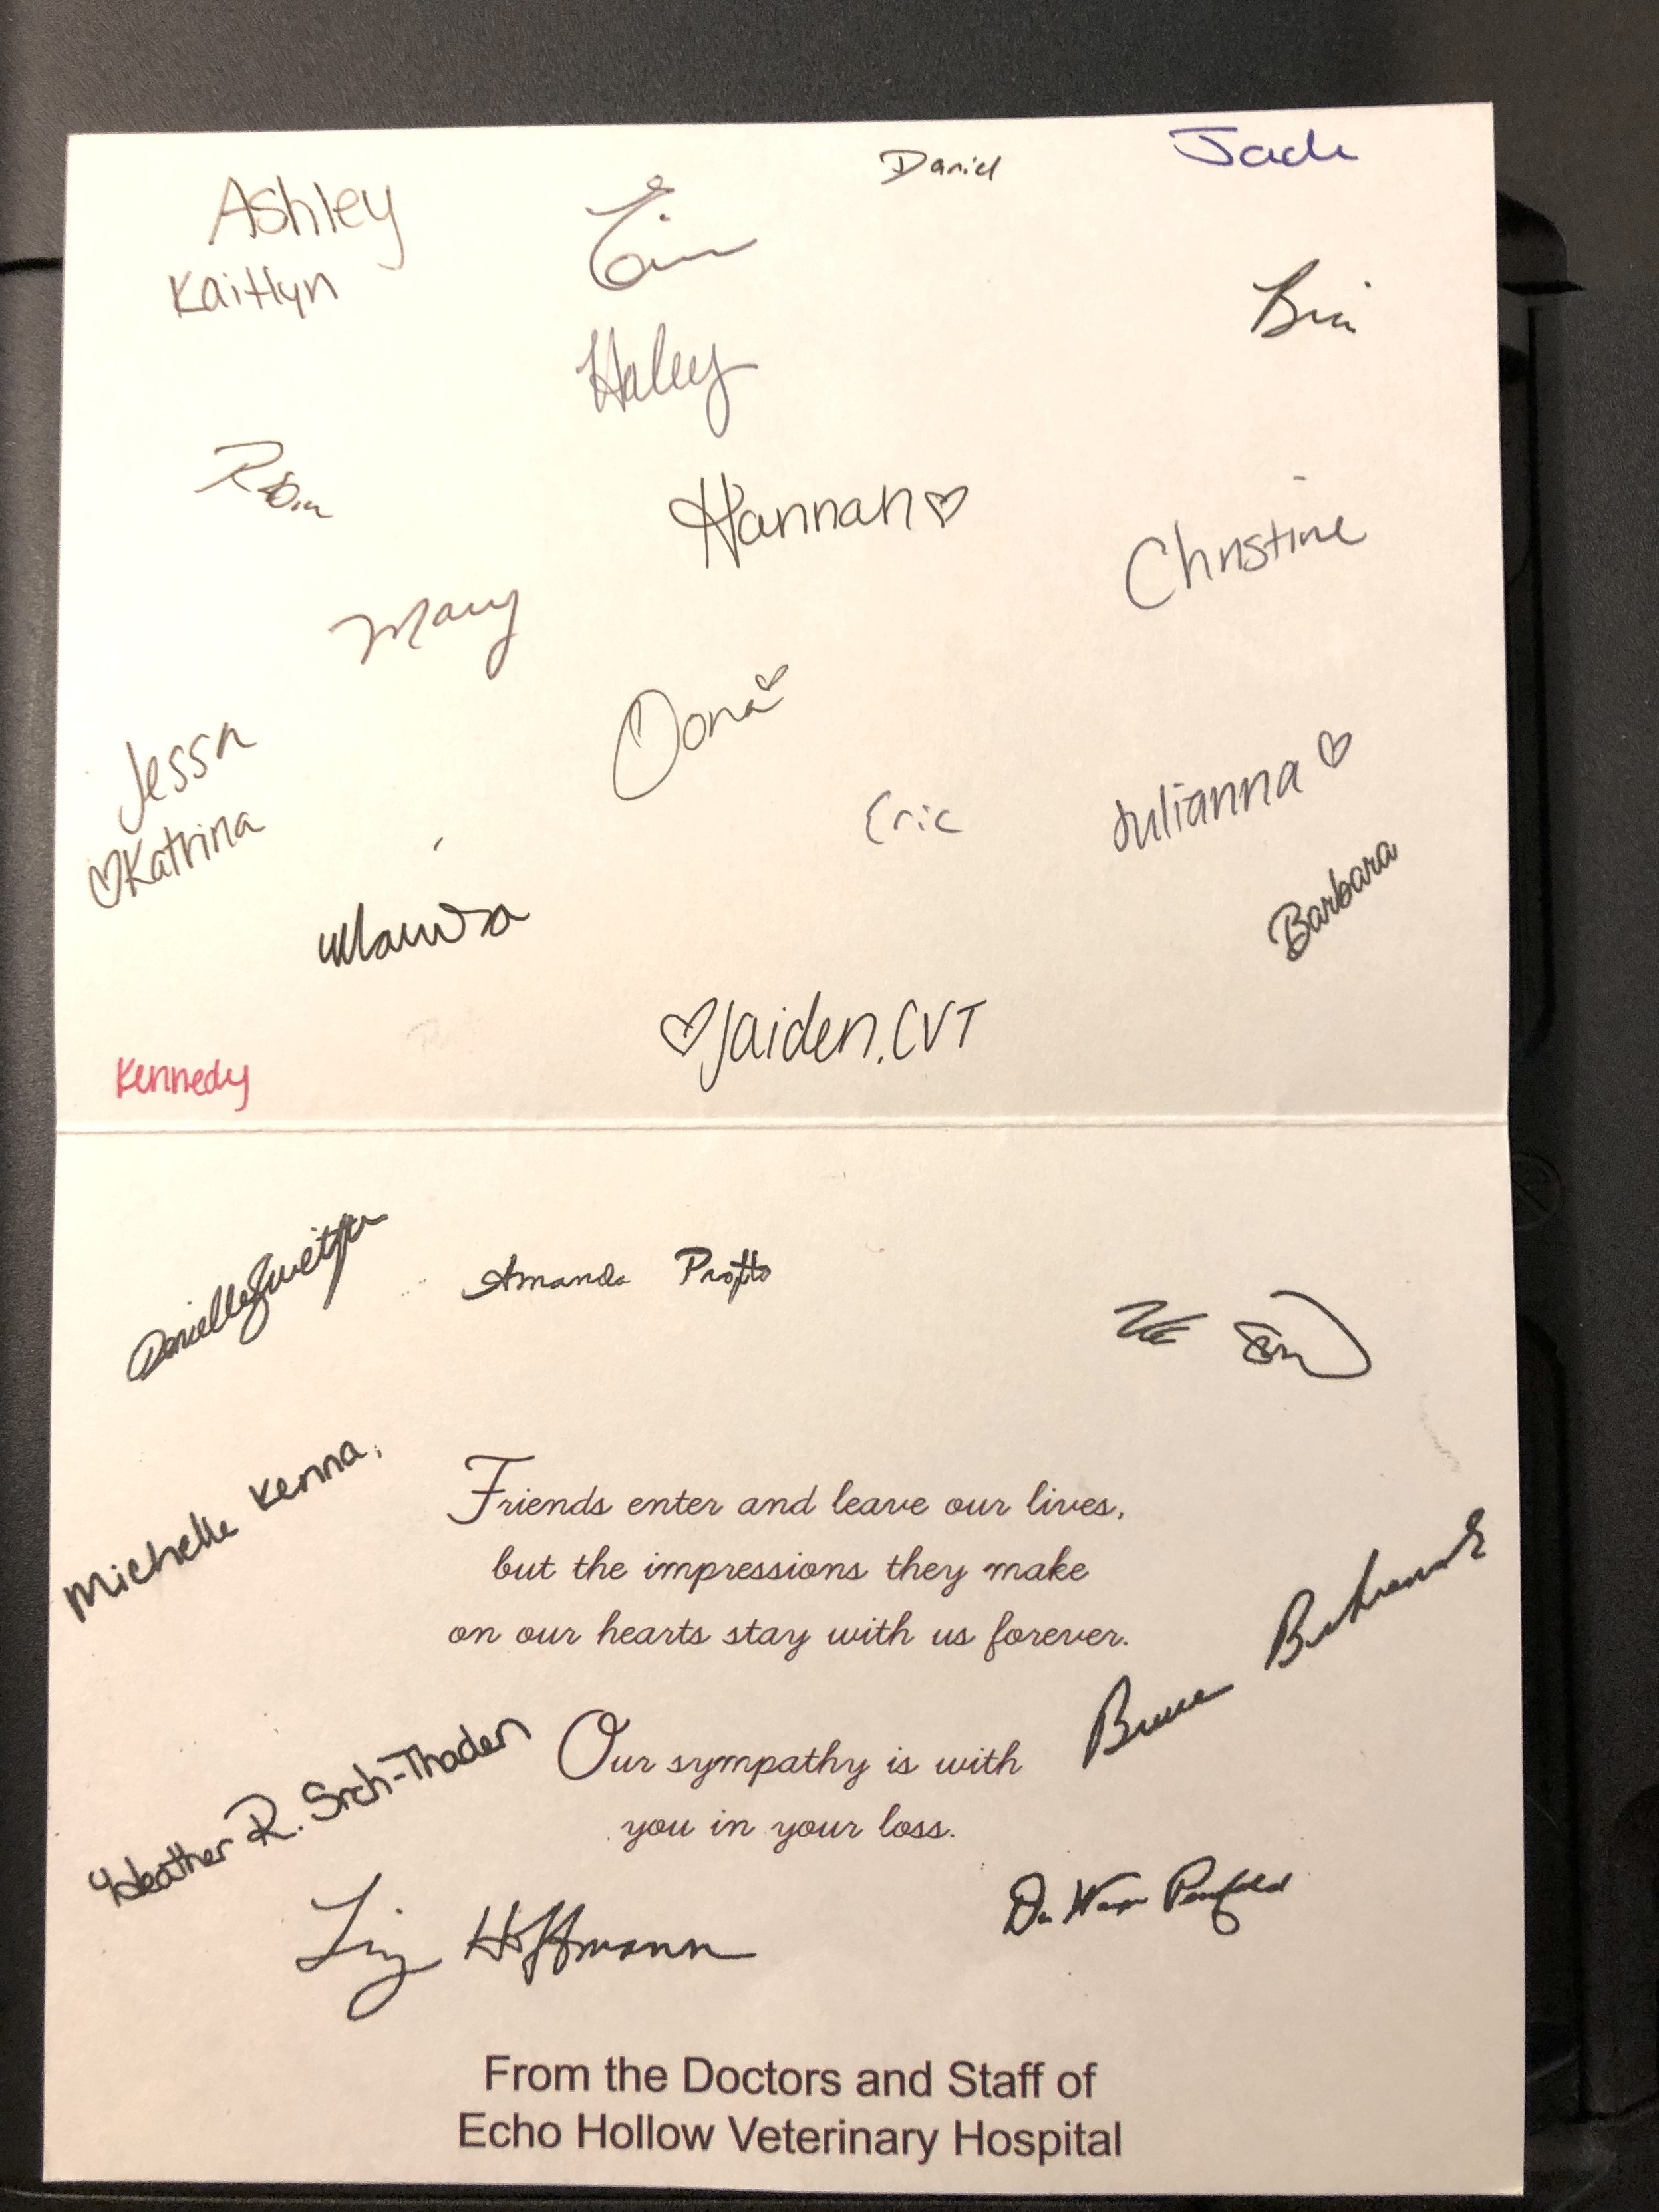 Daniel
Jade
Ashley
Kaitlyn
Haley
Bri
Robin
Hannah
Christine
Mary
Oona
Jessa
Katrina
Eric
Julianna
Barbara
Marissa
Jaiden, CVT
Kennedy
Amanda Profito
Michelle Kenna,
Friends enter and leave our lives,
but the impressions they make
on our hearts stay with us forever.
Our sympathy is with
you in your loss.
Heather R.
Liz Hoffmann
From the Doctors and Staff of
Echo Hollow Veterinary Hospital